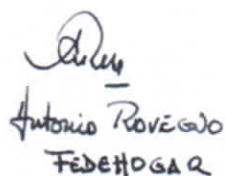 Antonio ROVEGNO
FEDEHOGAR